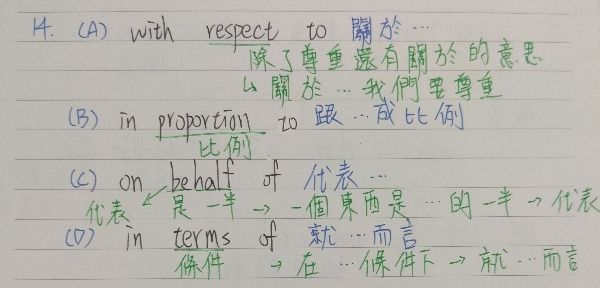 14. (A) with respect to 關於…
除了尊重還有關於的意思
↳ 關於…我們要尊重
(B) in proportion to 跟…成比例
比例
(C) on behalf of 代表…
代表 ↙ 是一半 → 一個東西是…的一半 → 代表
(D) in terms of 就…而言
條件 → 在…條件下 → 就…而言